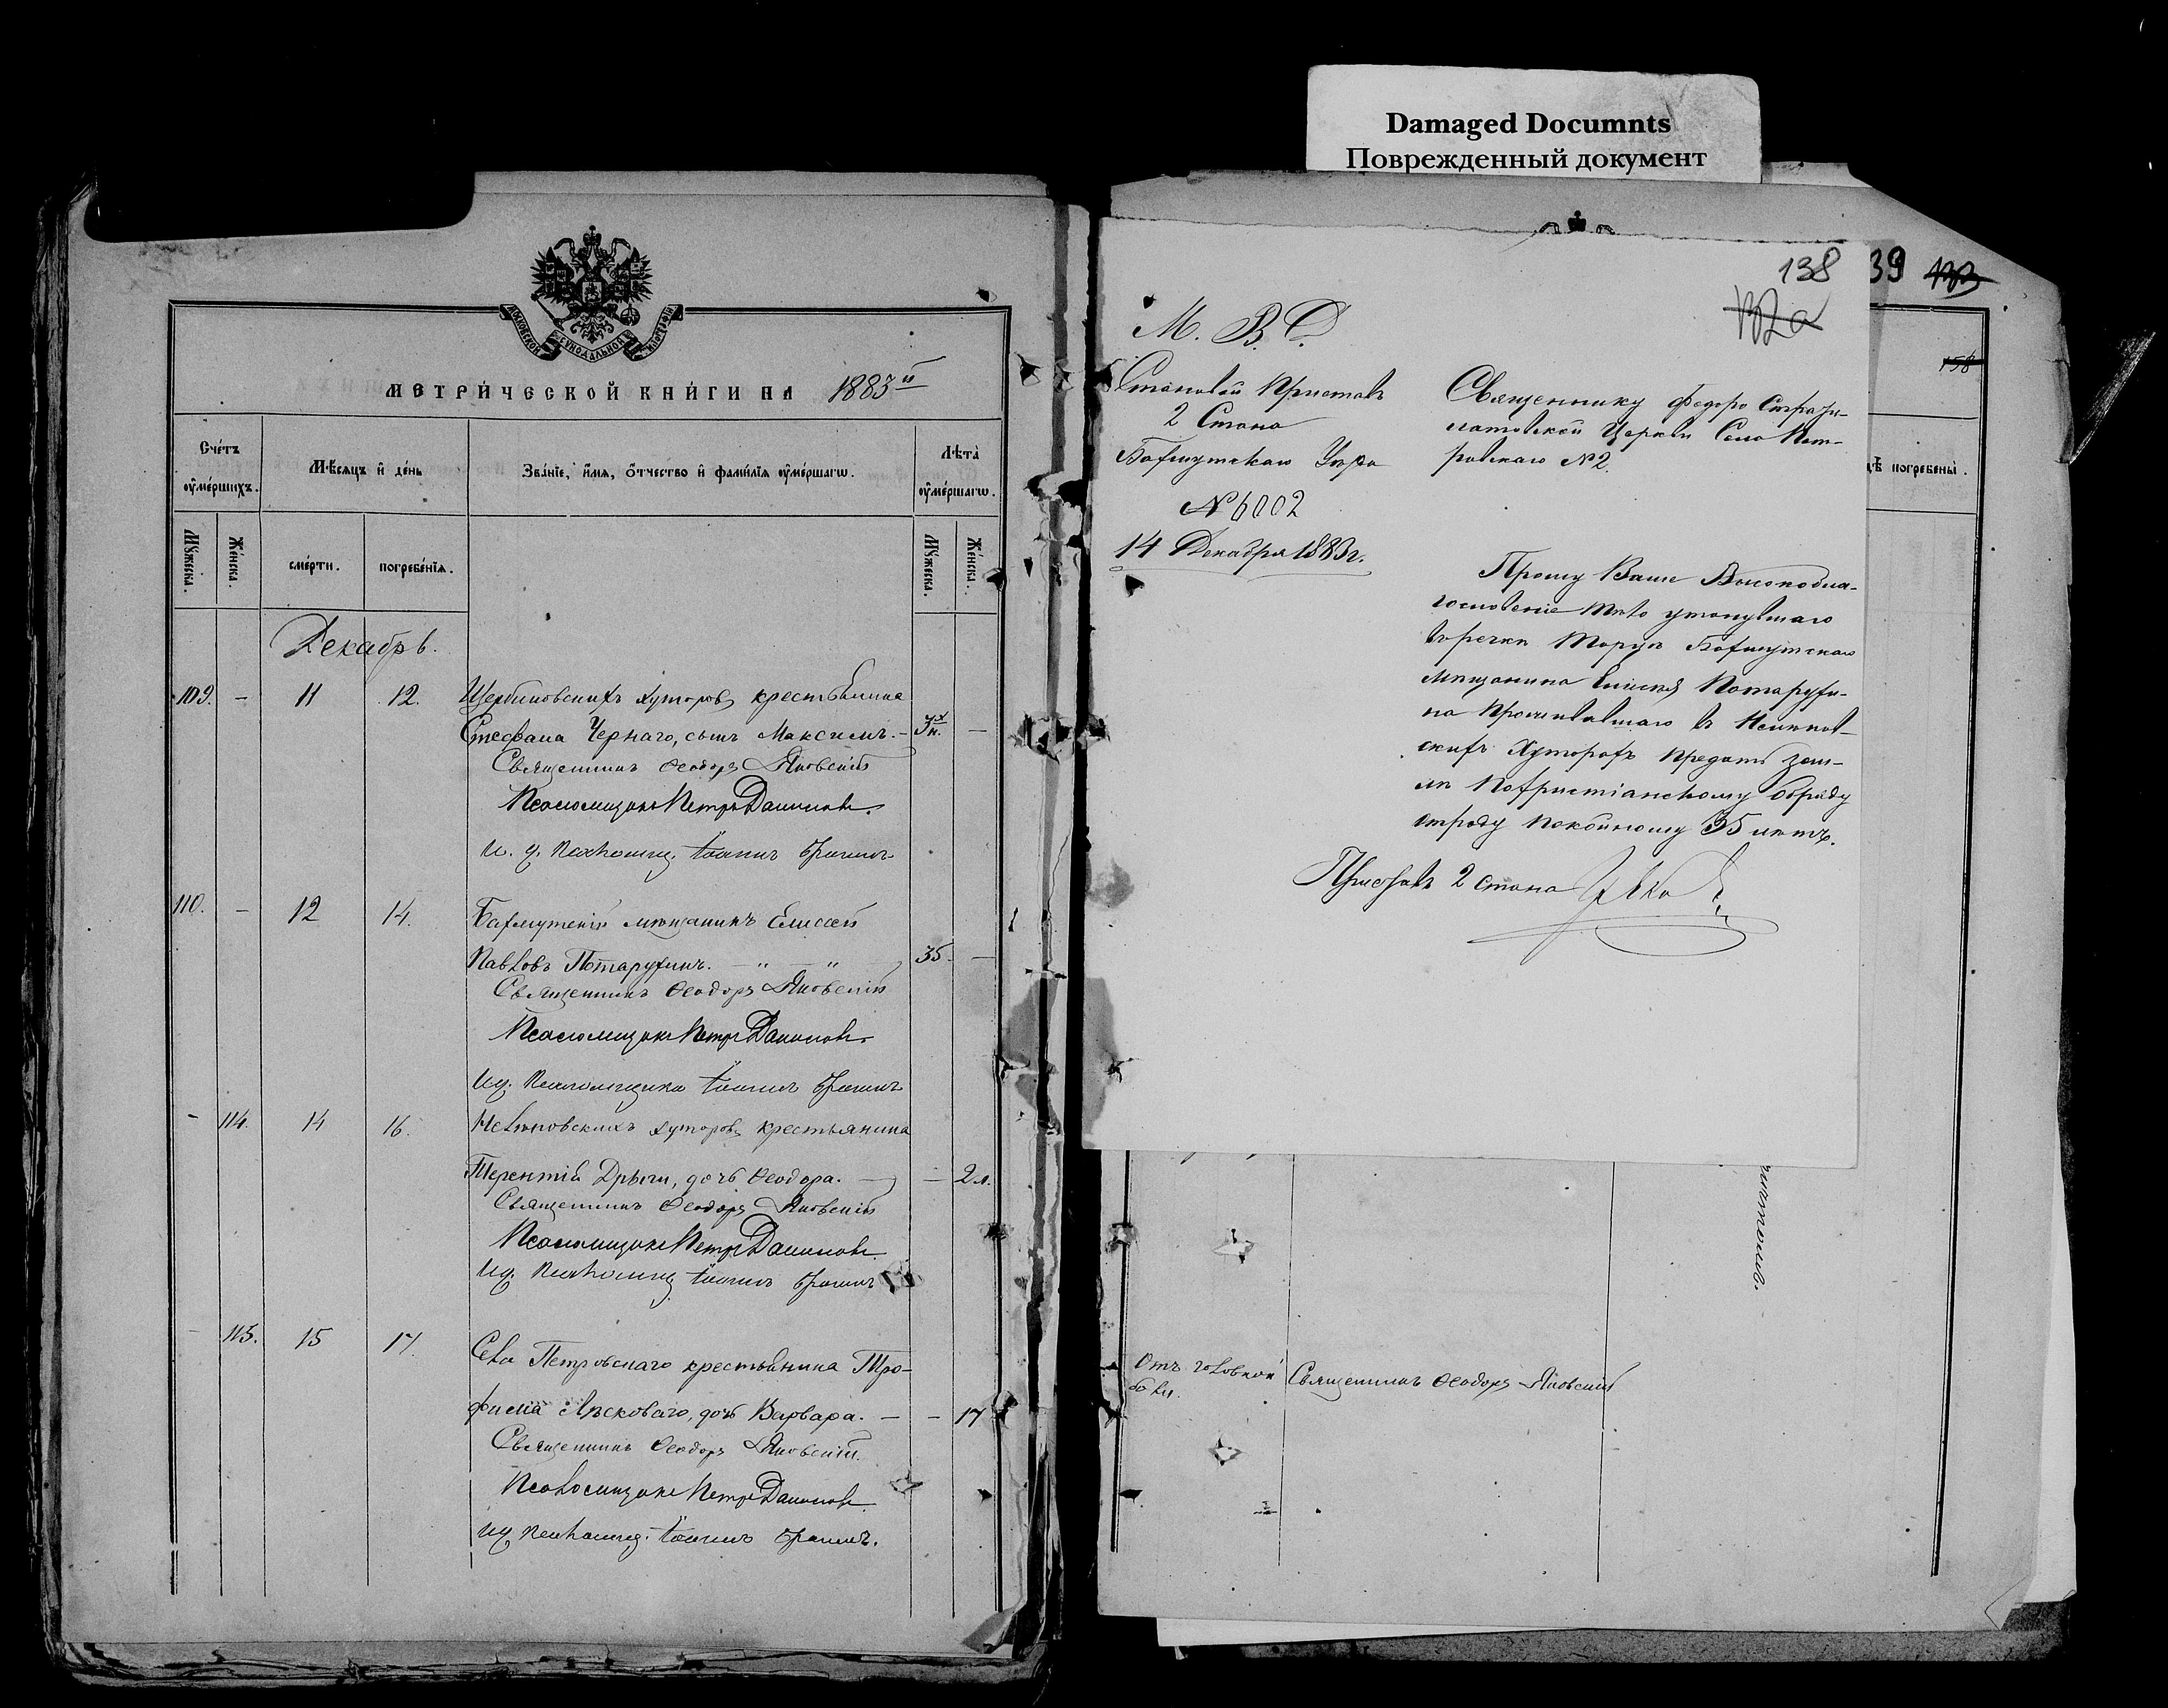 Damaged Documnts
Поврежденный документ
МОСКОВСКОЙ СѴНОДАЛЬНОЙ ТИПОГРАФІИ
МЕТРИ́ЧЕСКОЙ КНИ́ГИ НА 1883й
Сче́тъ ᲂу҆ме́ршихъ.
Мѣ́сяцъ и҆ де́нь
Зва́нїе, и҆́мя, ѻ҆́тчество и҆ фами́лїя ᲂу҆ме́ршагѡ.
Лѣ́та ᲂу҆ме́ршагѡ.
Мꙋ́жеска.
Же́нска.
сме́рти.
погребе́нїя.
Мꙋ́жеска.
Же́нска.
Декабрь.
109. - 11 12. Щербиновскихъ хуторовъ крестьянина
Стефана Чернаго, сынъ Максимъ. - 3х н. -
Священникъ Ѳеодоръ Яновскій
Псаломщикъ Петръ Данилов.
И. д. Псаломщ. Іоаннъ
110. - 12 14. Бахмутскій мѣщанинъ Елисей
Павловъ Потарухинъ. — " — " 35. -
Священникъ Ѳеодоръ Яновскій
Псаломщикъ Петръ Данилов.
И д. Псаломщика Іоаннъ
- 114. 14 16. Нелѣповскихъ хуторовъ крестьянина
Терентія Дрыги, дочь Ѳеодора. — - 2 л.
Священникъ Ѳеодоръ Яновскій
Псаломщикъ Петръ Данилов
И д. Псаломщ. Іоаннъ
- 115. 15 17. Села Петровскаго крестьянина Тро-
фима Лѣсковаго, дочь Варвара. — - 17
Священникъ Ѳеодоръ Яновскій.
Псаломщикъ Петръ Данилов
И д. Псаломщ. Іоаннъ
138
132а
39
158
М. В. Д.
Становой Приставъ
2 Стана
Бахмутскаго Уѣзда
№ 6002
14 Декабря 1883 г.
Священнику Федоро Страти-
латовской Церкви Села Пет-
ровскаго № 2.
Прошу Ваше Высокобла-
гословеніе тѣло утонувшаго
въ речкѣ Торцѣ Бахмутскаго
мѣщанина Елисея Потарухи-
на проживавшаго въ Нелѣпов-
скихъ Хуторахъ предать зем-
лѣ по христіанскому обряду
отроду покойному 35 лѣтъ.
Приставъ 2 стана
дѣ̀ погребены̀.
Отъ головной
боли.
Священникъ Ѳеодоръ Яновскій